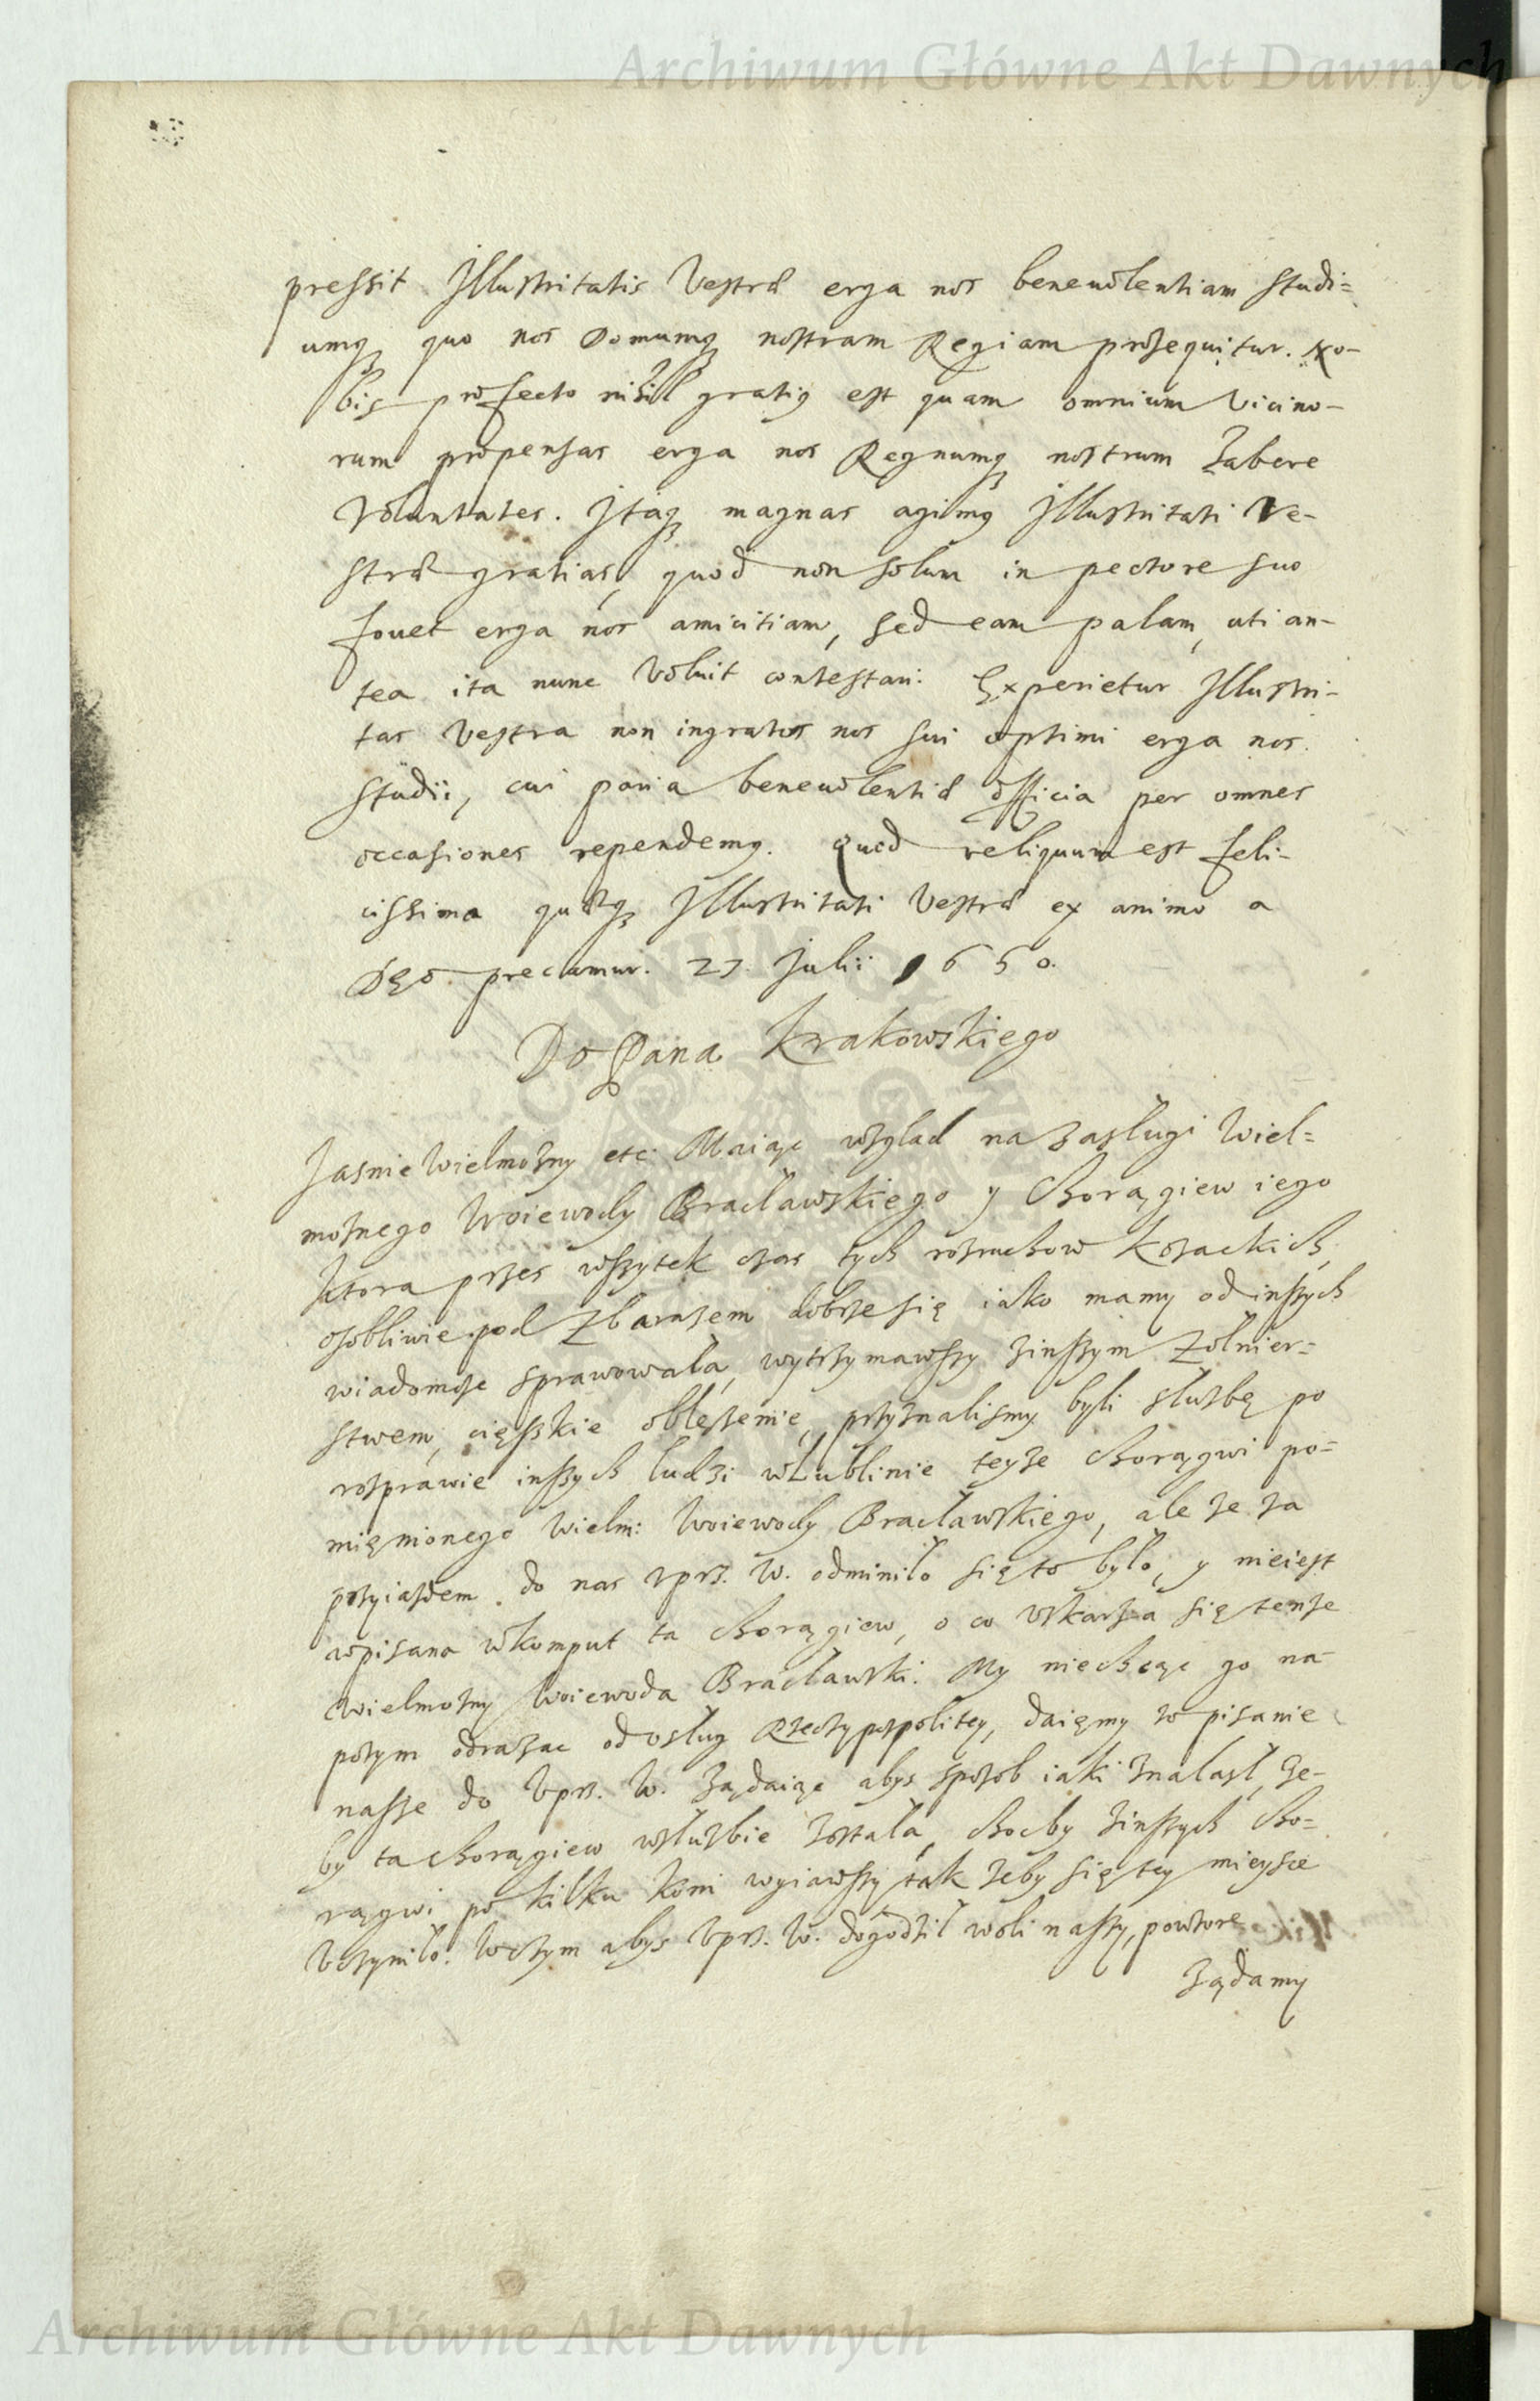 Archiwum Główne Akt Dawnych
pressit Illustritatis Vestræ erga nos beneuolentiam studi=
umq₃ quo nos Domumq₃ nostram Regiam prosequitur. No-
bis profecto nihil gratiꝰ est quam omnium Vicino-
rum propensas erga nos Regnumq₃ nostrum habere
Voluntates. Itaq₃ magnas agimꝰ Illustritati Ve-
stræ gratias, quod non solum in pectore suo
fouet erga nos amicitiam, sed eam palam, uti an-
tea ita nunc Voluit contestari. Experietur Illustri-
tas Vestra non ingratos nos sui optimi erga nos.
studii, cui paria beneuolentiæ officia per omnes
occasiones rependemꝰ. Quod reliquum est feli-
cissima quæq₃ Illustritati Vestræ ex animo a
Deo precamur. 27. Julii 1650.
Do Pana Krakowskiego
Jasnie Wielmozny etc. Maiąc wzglad na zasługi Wiel=
moznego Woiewody Bracławskiego y Chorągiew iego
ktora przes wszytek czas tych rozruchow kozackich,
osobliwie pod Zbarazem dobrze się iako mamy od inszych
wiadomosc sprawowała, wytrzymawszy zinszym Zołnier=
stwem, cięszkie oblęzenie, przyznalismy byli słuzbę po
rosprawie inszych ludzi wLublinie teyze Chorągwi po=
mięnionego Wielm: Woiewody Bracławskiego, ale ze za
przyiazdem do nas Vprz. W. odminiło się to było, y nieiest
wpisana wkomput ta Chorągiew, o co Vskarza się tenze
Wielmozny Woiewoda Bracławski. My niechcąc go na-
potym odrazac od Vsług Rzeczypospolitey, daięmy to pisanie
nasze do Vprz. W. Ządaiąc abys sposob iaki znalazł, ze-
by ta Chorągiew wsłuzbie została, choćby zinszych Cho=
rągwi po kilku koni wyiąwszy tak zeby się tey mieysce
Vczyniło. Wczym abys Vprz. W. dogodził woli naszy, powtore
Ządamy
Archiwum Główne Akt Dawnych